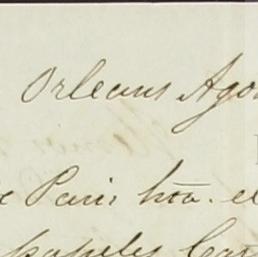 Orleans Ago
Paris hta. el
papeles Car